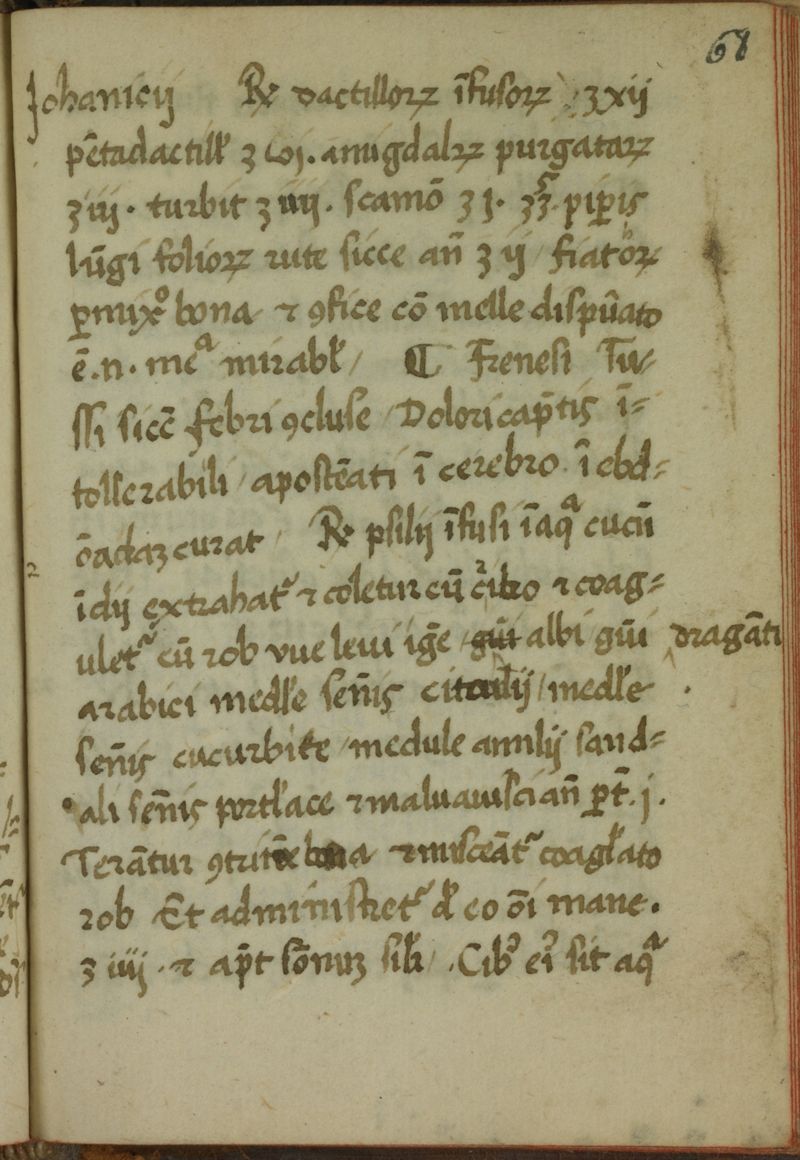 68
Johanicij ℞ dactillorꝝ ĩfusorꝝ ʒ xij
pẽtadactill̃ ʒ vj. amigdalꝝ purgatarꝝ
ʒ iij. turbit ʒ iiij. scamõ ʒ j. piꝑis
lũgi foliorꝝ rute sicce añ ʒ ij fiat
ꝑmixᵒ bona ⁊ ꝯfice cõ melle dispũato
ẽ .n. mᷓ mirabł ¶ Frenesi Tu-
ssi sicc̃ febri ꝯcluse Dolori cap̃tis ĩ=
tollerabili apostẽati ĩ cerebro ĩ ebd=
õadaʒ curat ℞ psilij ĩfusi ĩ aqᷓ cucũ
ĩdij extrahatᷣ ⁊ coletur cũ cͥbro ⁊ coag=
uletᷣ cũ rob vue leui igẽ albi gũi dragãti
arabici medl̃e sem̃is citrulij medl̃e
sem̃is cucurbite medule annlij sand=
ali sem̃is portl̃ace ⁊ maluauisci añ ꝑt̃. j.
Terãtur ꝯtritiõe bona ⁊ misceãtᷣ coagl̃ato
rob Et administretᷣ d̃ eo õi mane.
ʒ iiij. ⁊ ap̃t sõnuʒ sil̃i. Cibꝰ eiꝰ sit aqᷓ